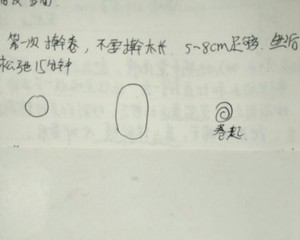 第一次擀卷，不需擀太长，5~8cm足够，然后
松弛15分钟
卷起